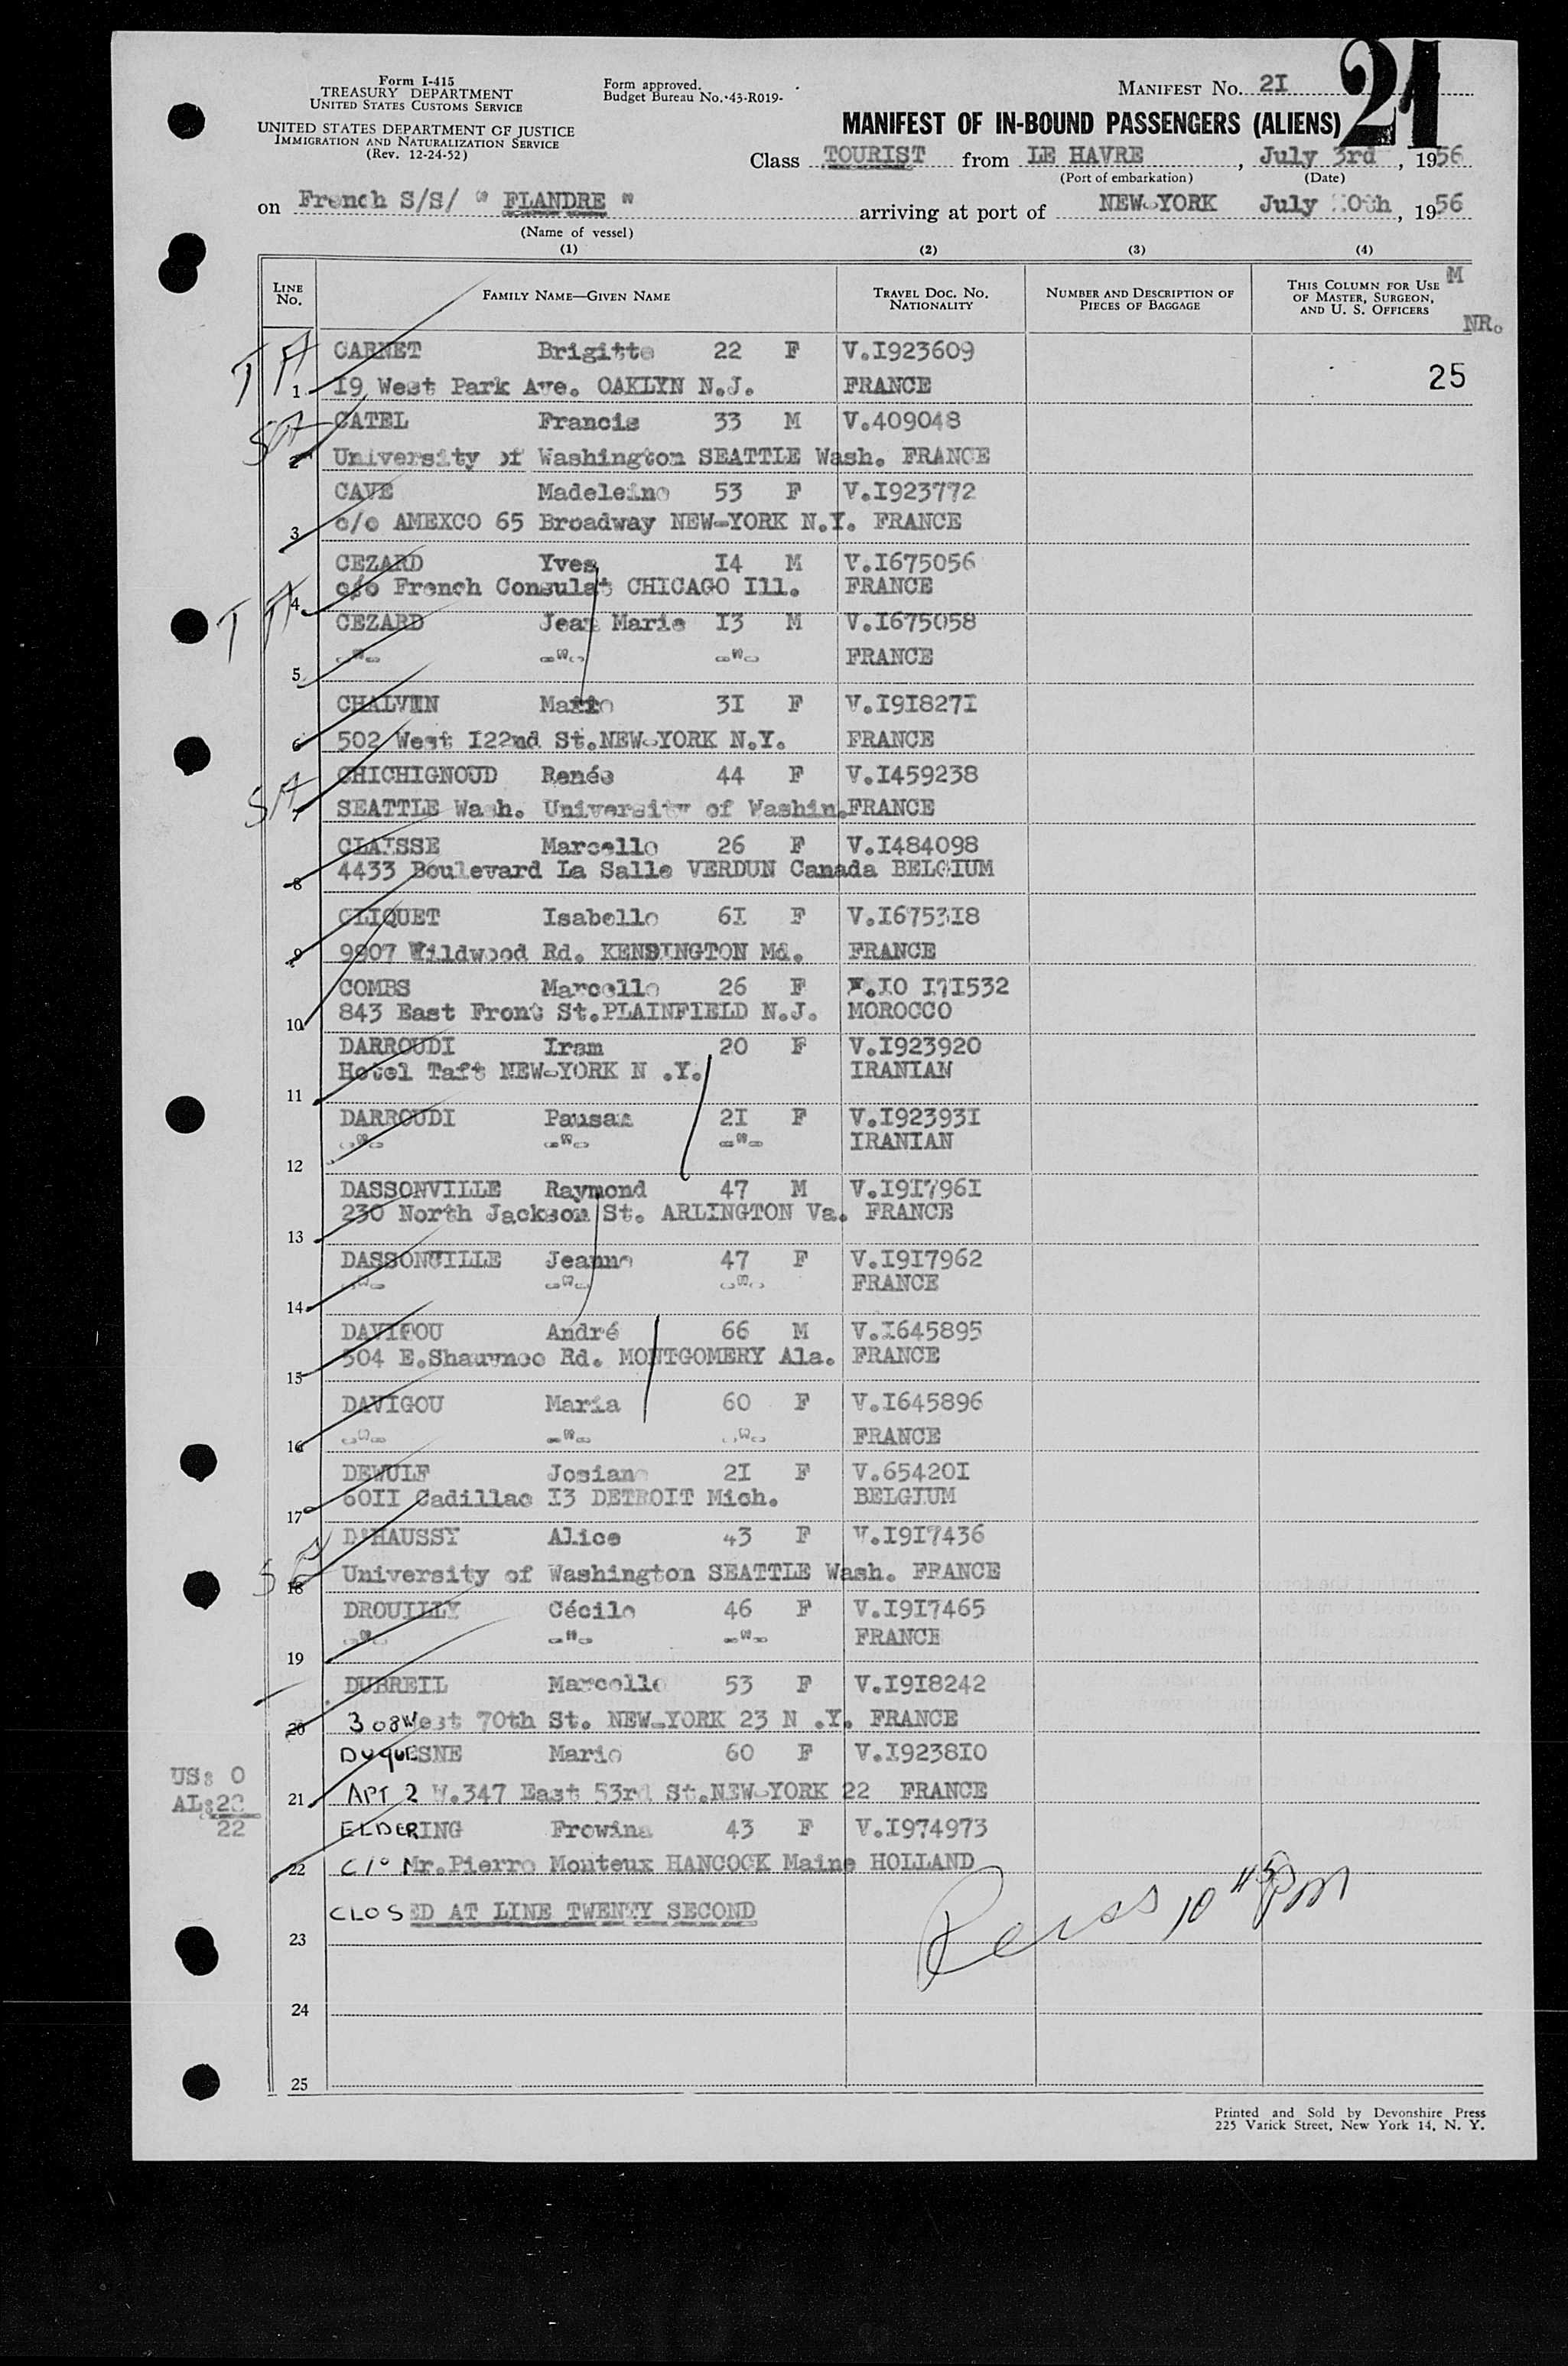 Form I-415
TREASURY DEPARTMENT
UNITED STATES CUSTOMS SERVICE
UNITED STATES DEPARTMENT OF JUSTICE
IMMIGRATION AND NATURALIZATION SERVICE
(Rev. 12-24-52)
Form approved.
Budget Bureau No. 43-R019-
MANIFEST NO. 2I
21
MANIFEST OF IN-BOUND PASSENGERS (ALIENS)
Class TOURIST from LE HAVRE, July 3rd, 1956
(Port of embarkation) (Date)
on French S/S/ " FLANDRE " arriving at port of NEW-YORK July 10th, 1956
(Name of vessel)
(1) (2) (3) (4)
LINE NO. FAMILY NAME—GIVEN NAME TRAVEL DOC. NO. NATIONALITY NUMBER AND DESCRIPTION OF PIECES OF BAGGAGE THIS COLUMN FOR USE OF MASTER, SURGEON, AND U. S. OFFICERS M
NR.
CARNET Brigitte 22 F V.I923609
1 I9 West Park Ave. OAKLYN N.J. FRANCE 25
CATEL Francis 33 M V.409048
2 University of Washington SEATTLE Wash. FRANCE
CAVE Madeleine 53 F V.I923772
3 c/o AMEXCO 65 Broadway NEW-YORK N.Y. FRANCE
CEZARD Yves I4 M V.I675056
4 c/o French Consulat CHICAGO Ill. FRANCE
CEZARD Jean Marie I3 M V.I675058
5 -"- -"- -"- FRANCE
CHALVEN 3I F V.I9I827I
6 502 West I22nd St.NEW-YORK N.Y. FRANCE
CHICHIGNOUD Renée 44 F V.I459238
7 SEATTLE Wash. University of Washin.FRANCE
CLAISSE Marcelle 26 F V.I484098
8 4433 Boulevard La Salle VERDUN Canada BELGIUM
CLIQUET Isabelle 6I F V.I6753I8
9 9907 Wildwood Rd. KENSINGTON Md. FRANCE
COMBS Marcelle 26 F .I0 I7I532
10 843 East Front St.PLAINFIELD N.J. MOROCCO
DARROUDI Iram 20 F V.I923920
11 Hotel Taft NEW-YORK N .Y. IRANIAN
DARROUDI Pausan 2I F V.I92393I
12 -"- -"- -"- IRANIAN
DASSONVILLE Raymond 47 M V.I9I796I
13 230 North Jackson St. ARLINGTON Va. FRANCE
DASSONVILLE Jeanne 47 F V.I9I7962
14 -"- -"- -"- FRANCE
DAVIGOU André 66 M V.I645895
15 504 E.Shauvnee Rd. MONTGOMERY Ala. FRANCE
DAVIGOU Maria 60 F V.I645896
16 -"- -"- -"- FRANCE
DEWULF Josiane 2I F V.65420I
17 60II Cadillac I3 DETROIT Mich. BELGIUM
D'HAUSSY Alice 43 F V.I9I7436
18 University of Washington SEATTLE Wash. FRANCE
DROUILLY Cécile 46 F V.I9I7465
19 -"- -"- -"- FRANCE
DUBREIL Marcelle 53 F V.I9I8242
20 308 West 70th St. NEW-YORK 23 N .Y. FRANCE
DUQUESNE Marie 60 F V.I9238I0
US: 0
21 APT 2 W.347 East 53rd St.NEW-YORK 22 FRANCE
AL:22
22
ELDERING Frowina 43 F V.I974973
22 c/o Mr.Pierre Monteux HANCOCK Maine HOLLAND
CLOSED AT LINE TWENTY SECOND
Reiss 10 45 PM
23
24
25
Printed and Sold by Devonshire Press
225 Varick Street, New York 14, N. Y.